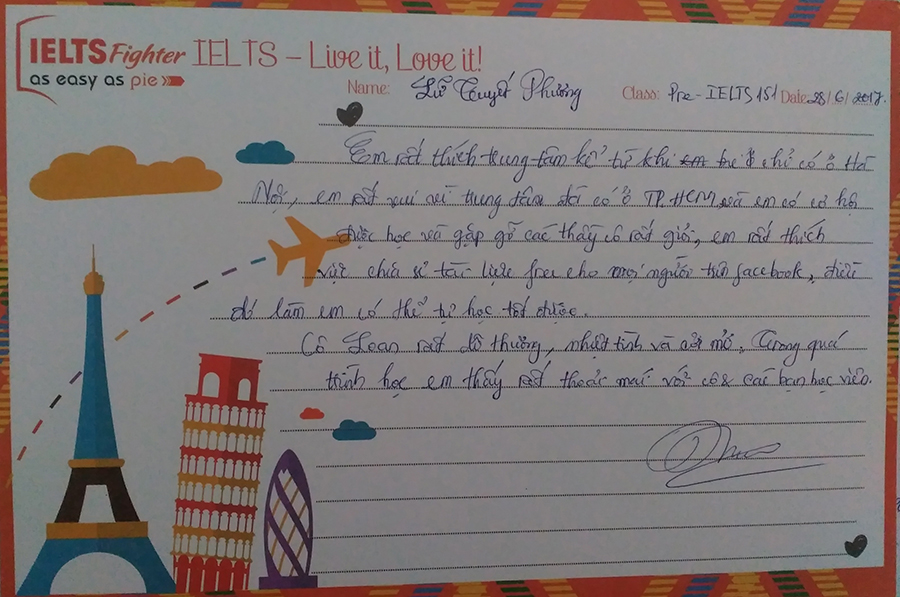 IELTS Fighter IELTS – Live it, Love it!
as easy as pie
Name: Lữ Tuyết Phương Class: Pre - IELTS 151 Date: 28/6/2017.
Em rất thích trung tâm kể từ khi chỉ có ở Hà
Nội, em rất vui vì trung tâm đã có ở TP. HCM và em có cơ hội
được học và gặp gỡ các thầy cô rất giỏi, em rất thích
việc chia sẻ tài liệu free cho mọi người trên facebook, điều
đó làm em có thể tự học tốt được.
Cô Loan rất dễ thương, nhiệt tình và cởi mở. Trong quá
trình học em thấy rất thoải mái với cô & các bạn học viên.